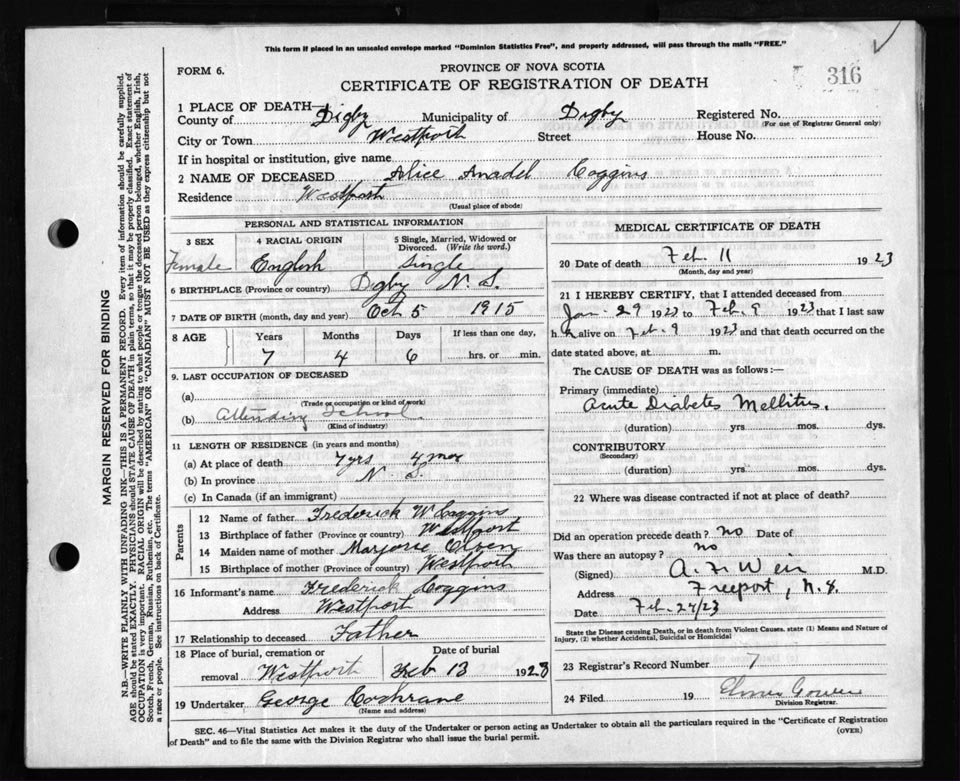 This form if placed in an unsealed envelope marked "Dominion Statistics Free", and properly addressed, will pass through the mails "FREE."
FORM 6.
PROVINCE OF NOVA SCOTIA
CERTIFICATE OF REGISTRATION OF DEATH
316
1 PLACE OF DEATH—
County of Digby Municipality of Digby Registered No.
(For use of Registrar General only)
City or Town Westport Street House No.
If in hospital or institution, give name
2 NAME OF DECEASED Alice Anadel Coggins
Residence Westport
(Usual place of abode)
PERSONAL AND STATISTICAL INFORMATION
3 SEX 4 RACIAL ORIGIN 5 Single, Married, Widowed or Divorced. (Write the word.)
Female English Single
6 BIRTHPLACE (Province or country) Digby N. S.
7 DATE OF BIRTH (month, day and year) Oct 5 1915
8 AGE Years Months Days If less than one day,
7 4 6 hrs. or min.
9. LAST OCCUPATION OF DECEASED
(a)
(Trade or occupation or kind of work)
(b) Attending School
(Kind of industry)
11 LENGTH OF RESIDENCE (in years and months)
(a) At place of death 7 yrs 4 mos
(b) In province N. S.
(c) In Canada (if an immigrant)
Parents
12 Name of father Frederick W Coggins
13 Birthplace of father (Province or country) Westport
14 Maiden name of mother Marjorie
15 Birthplace of mother (Province or country) Westport
16 Informant's name Frederick Coggins
Address Westport
17 Relationship to deceased Father
18 Place of burial, cremation or removal Westport Date of burial Feb 13 1923
19 Undertaker George Cochrane
(Name and address)
MEDICAL CERTIFICATE OF DEATH
20 Date of death Feb. 11 1923
(Month, day and year)
21 I HEREBY CERTIFY, that I attended deceased from
Jan. 29 1923 to Feb. 9 1923 that I last saw
h alive on Feb. 9 1923 and that death occurred on the
date stated above, at m.
The CAUSE OF DEATH was as follows:—
Primary (immediate)
Acute Diabetes Mellitus.
(duration) yrs mos. dys.
CONTRIBUTORY
(Secondary)
(duration) yrs mos. dys.
22 Where was disease contracted if not at place of death?
Did an operation precede death? no Date of
Was there an autopsy? no
(Signed) A. F. Weir M.D.
Address Freeport, N.S.
Date Feb. 27/23
State the Disease causing Death, or in death from Violent Causes. state (1) Means and Nature of
Injury, (2) whether Accidental, Suicidal or Homicidal
23 Registrar's Record Number 7
24 Filed 19 Elmer Gower
Division Registrar.
SEC. 46—Vital Statistics Act makes it the duty of the Undertaker or person acting as Undertaker to obtain all the particulars required in the "Certificate of Registration
of Death" and to file the same with the Division Registrar who shall issue the burial permit.
(OVER)
MARGIN RESERVED FOR BINDING
N.B.—WRITE PLAINLY WITH UNFADING INK—THIS IS A PERMANENT RECORD. Every item of information should be carefully supplied.
AGE should be stated EXACTLY. PHYSICIANS should STATE CAUSE OF DEATH in plain terms, so that it may be properly classified. Exact statement of
OCCUPATION is very important. RACIAL ORIGIN will be described by stating to what people or tongue the deceased person belonged, whether English, Irish,
Scotch, French, German, Russian, Ruthenian, etc. The terms "AMERICAN" OR "CANADIAN" MUST NOT BE USED as they express citizenship but not
a race or people. See instructions on back of Certificate.